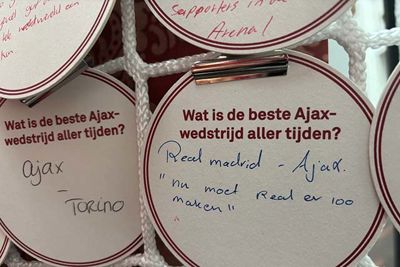 supporters in de
Arena!
Wat is de beste Ajax-
wedstrijd aller tijden?
Ajax
-
TORINO
Wat is de beste Ajax-
wedstrijd aller tijden?
Real madrid - Ajax.
"nu moet Real er 100
maken"